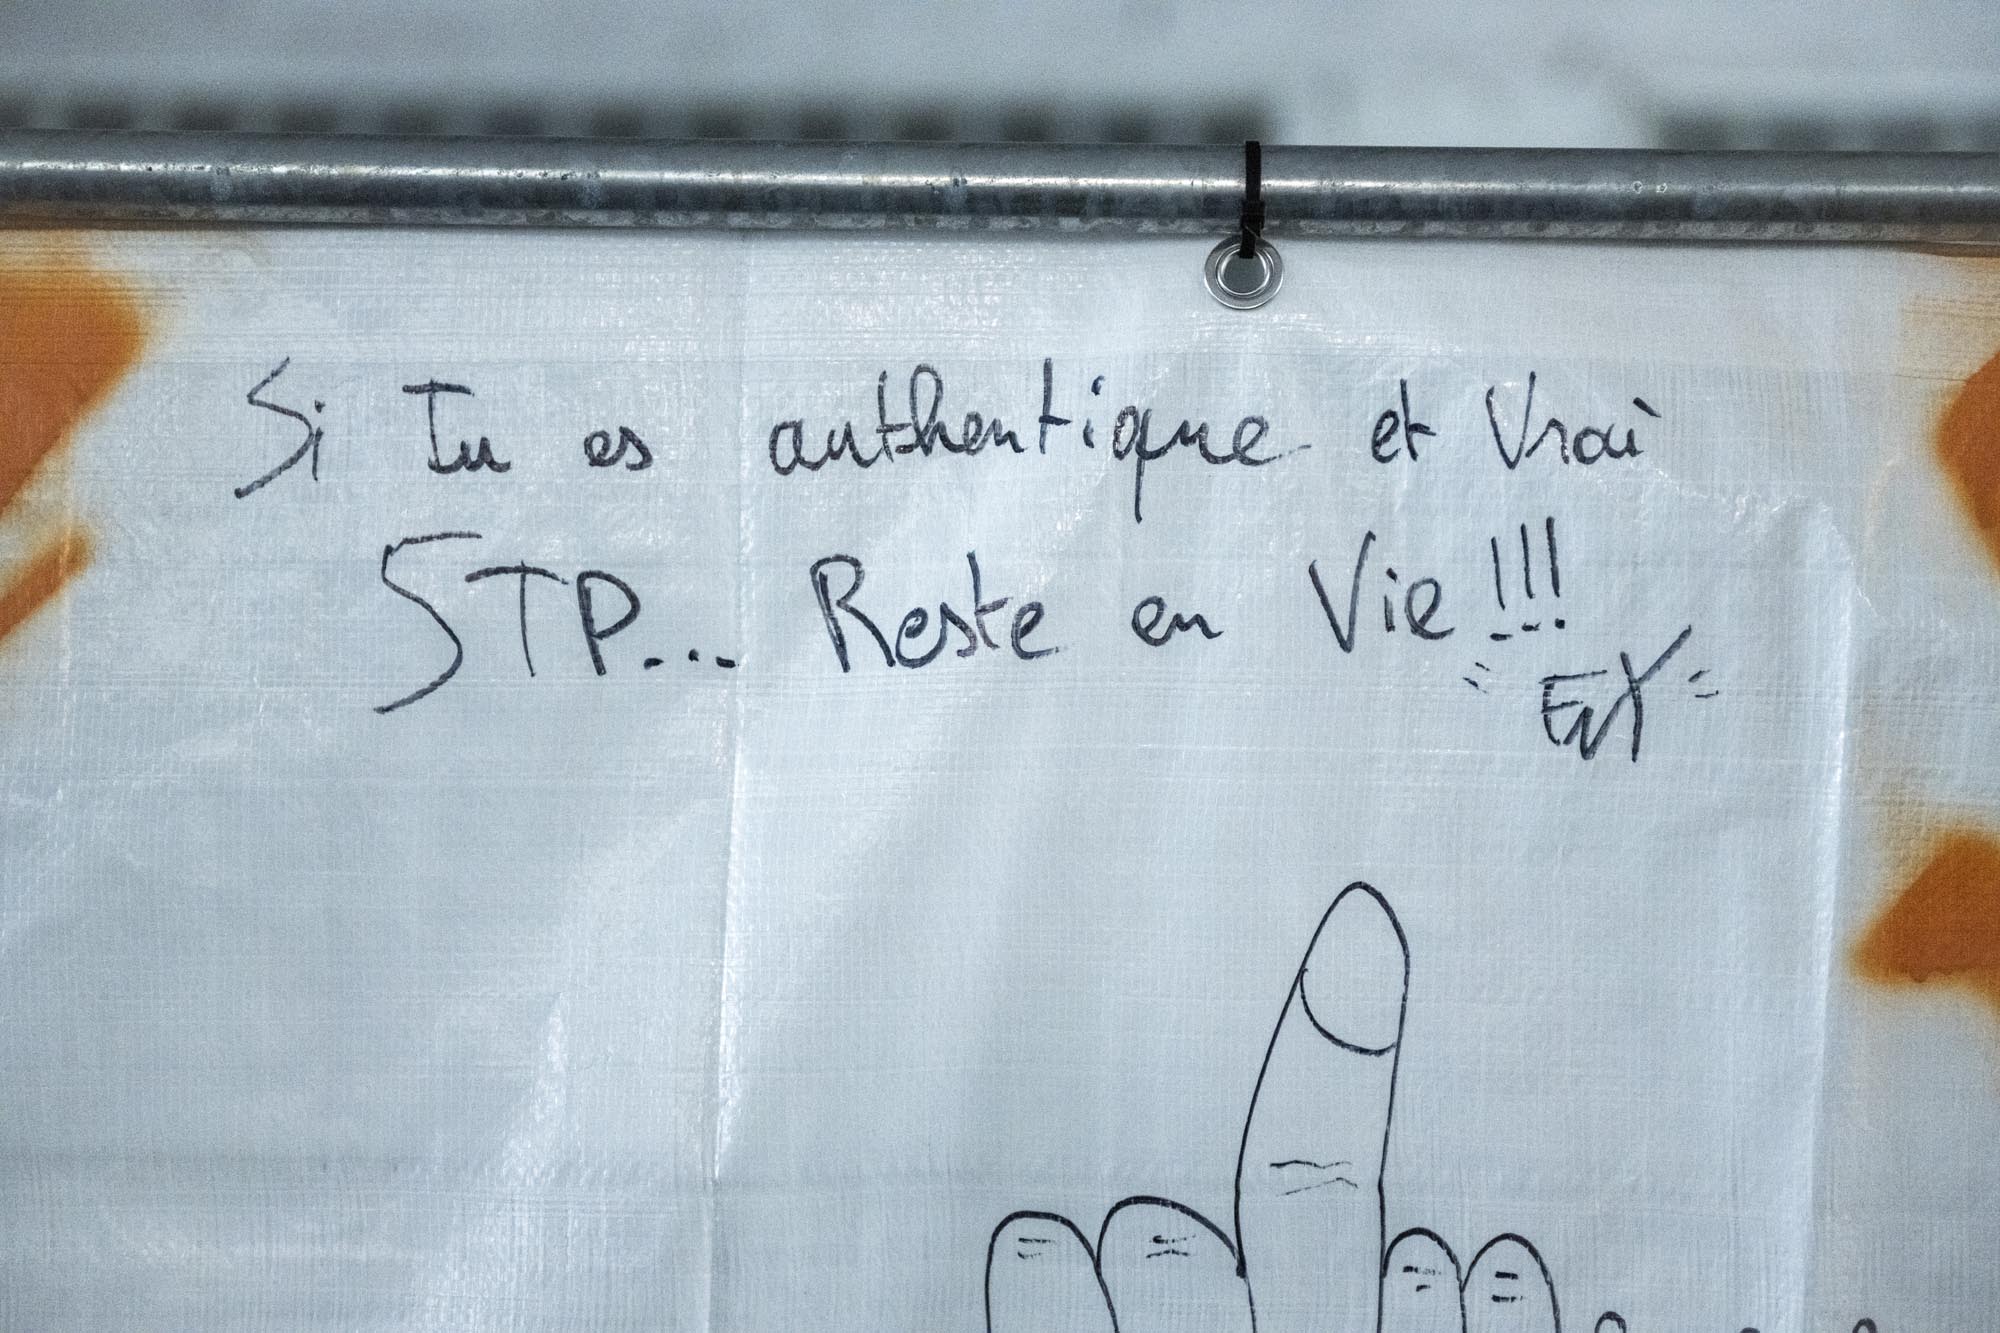 Si Tu es authentique et Vrai
STP... Reste en Vie !!!